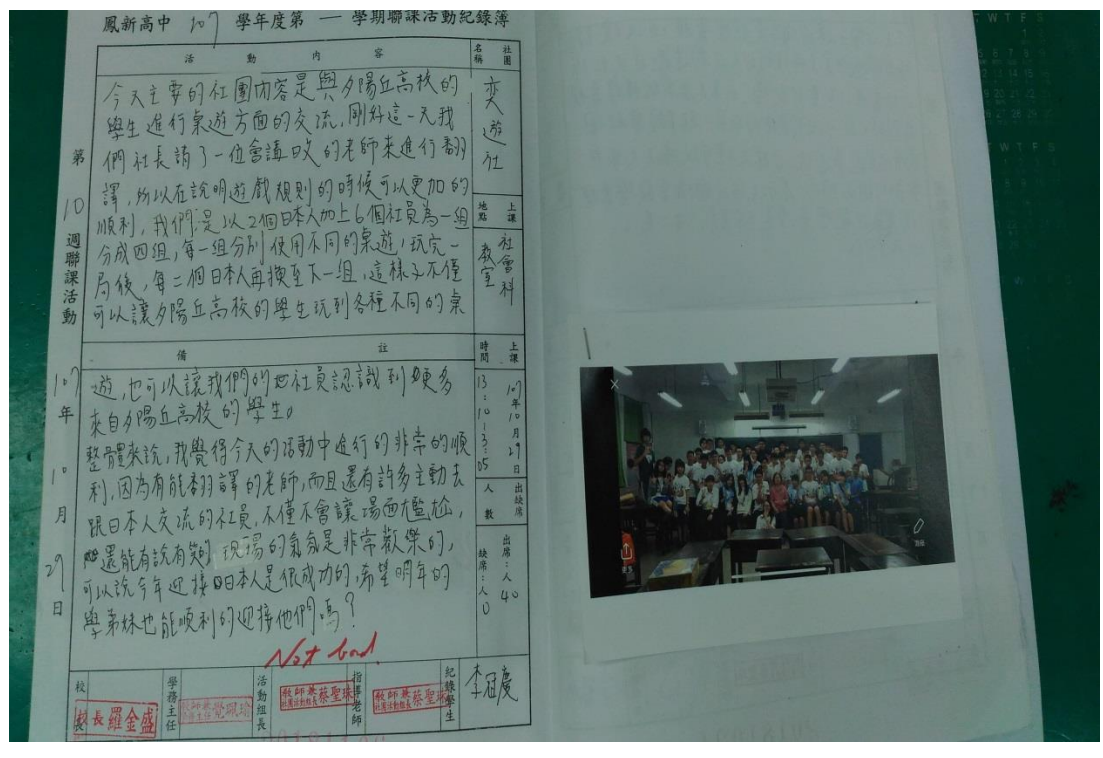 鳳新高中 107 學年度第 一 學期聯課活動紀錄簿
活動內容
社團名稱
奕遊社
今天主要的社團內容是與夕陽丘高校的
學生進行桌遊方面的交流,剛好這一天我
們社長請了一位會講日文的老師來進行翻
譯,所以在說明遊戲規則的時候可以更加的
順利,我們是以2個日本人加上6個社員為一組
分成四組,每一組分別使用不同的桌遊,玩完一
局後,每二個日本人再換至下一組,這樣子不僅
可以讓夕陽丘高校的學生玩到各種不同的桌
上課地點
社會科教室
第10週聯課活動
107年10月29日
備註
遊,也可以讓我們的社員認識到更多
來自夕陽丘高校的學生。
整體來說,我覺得今天的活動中進行的非常的順
利,因為有能翻譯的老師,而且還有許多主動去
跟日本人交流的社員,不僅不會讓場面尷尬,
還能有說有笑,現場的氣氛是非常歡樂的,
可以說今年迎接日本人是很成功的,希望明年的
學弟妹也能順利的迎接他們嗎?
Not bad.
上課時間
107年10月29日
13:10-3:05
出缺席人數
出席:人40
缺席:人0
校長
校長羅金盛
學務主任
活動組長
教師兼社團活動組長蔡聖珠
指導老師
教師兼社團活動組長蔡聖珠
紀錄學生
李冠慶
W T F S